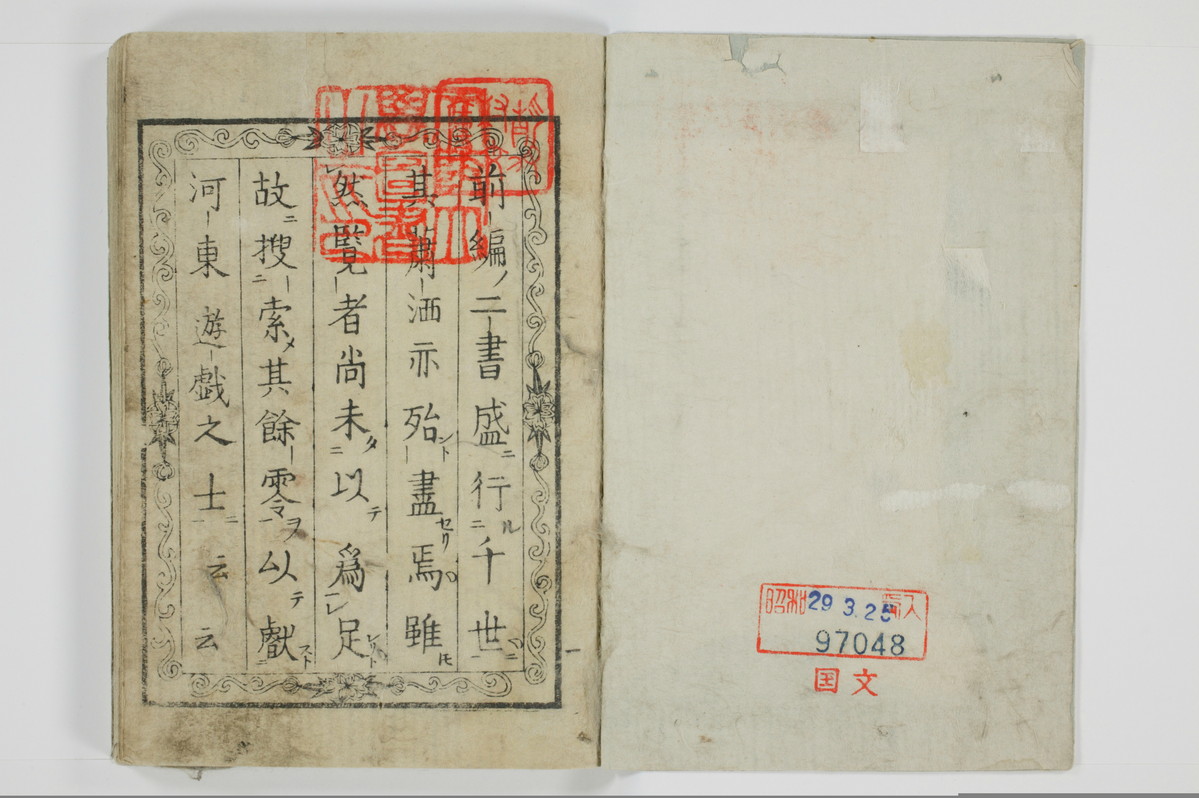 昭和29.3.25購入
97048
国文
前編ノ二書盛ニ行ル于世ニ
其蕭洒亦殆ント盡セリ焉雖モ
然覽者尚未タ以テ爲足レリト
故ニ搜索メ其餘零ヲ以テ獻スト
河東遊戯之士ニ云云
一